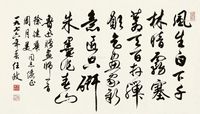 風生白下千
林暗霧塞
蒼天百卉殫
願乞畫家新
意匠只研
朱墨作春山
魯迅贈畫師
同志
一九六六年 任政